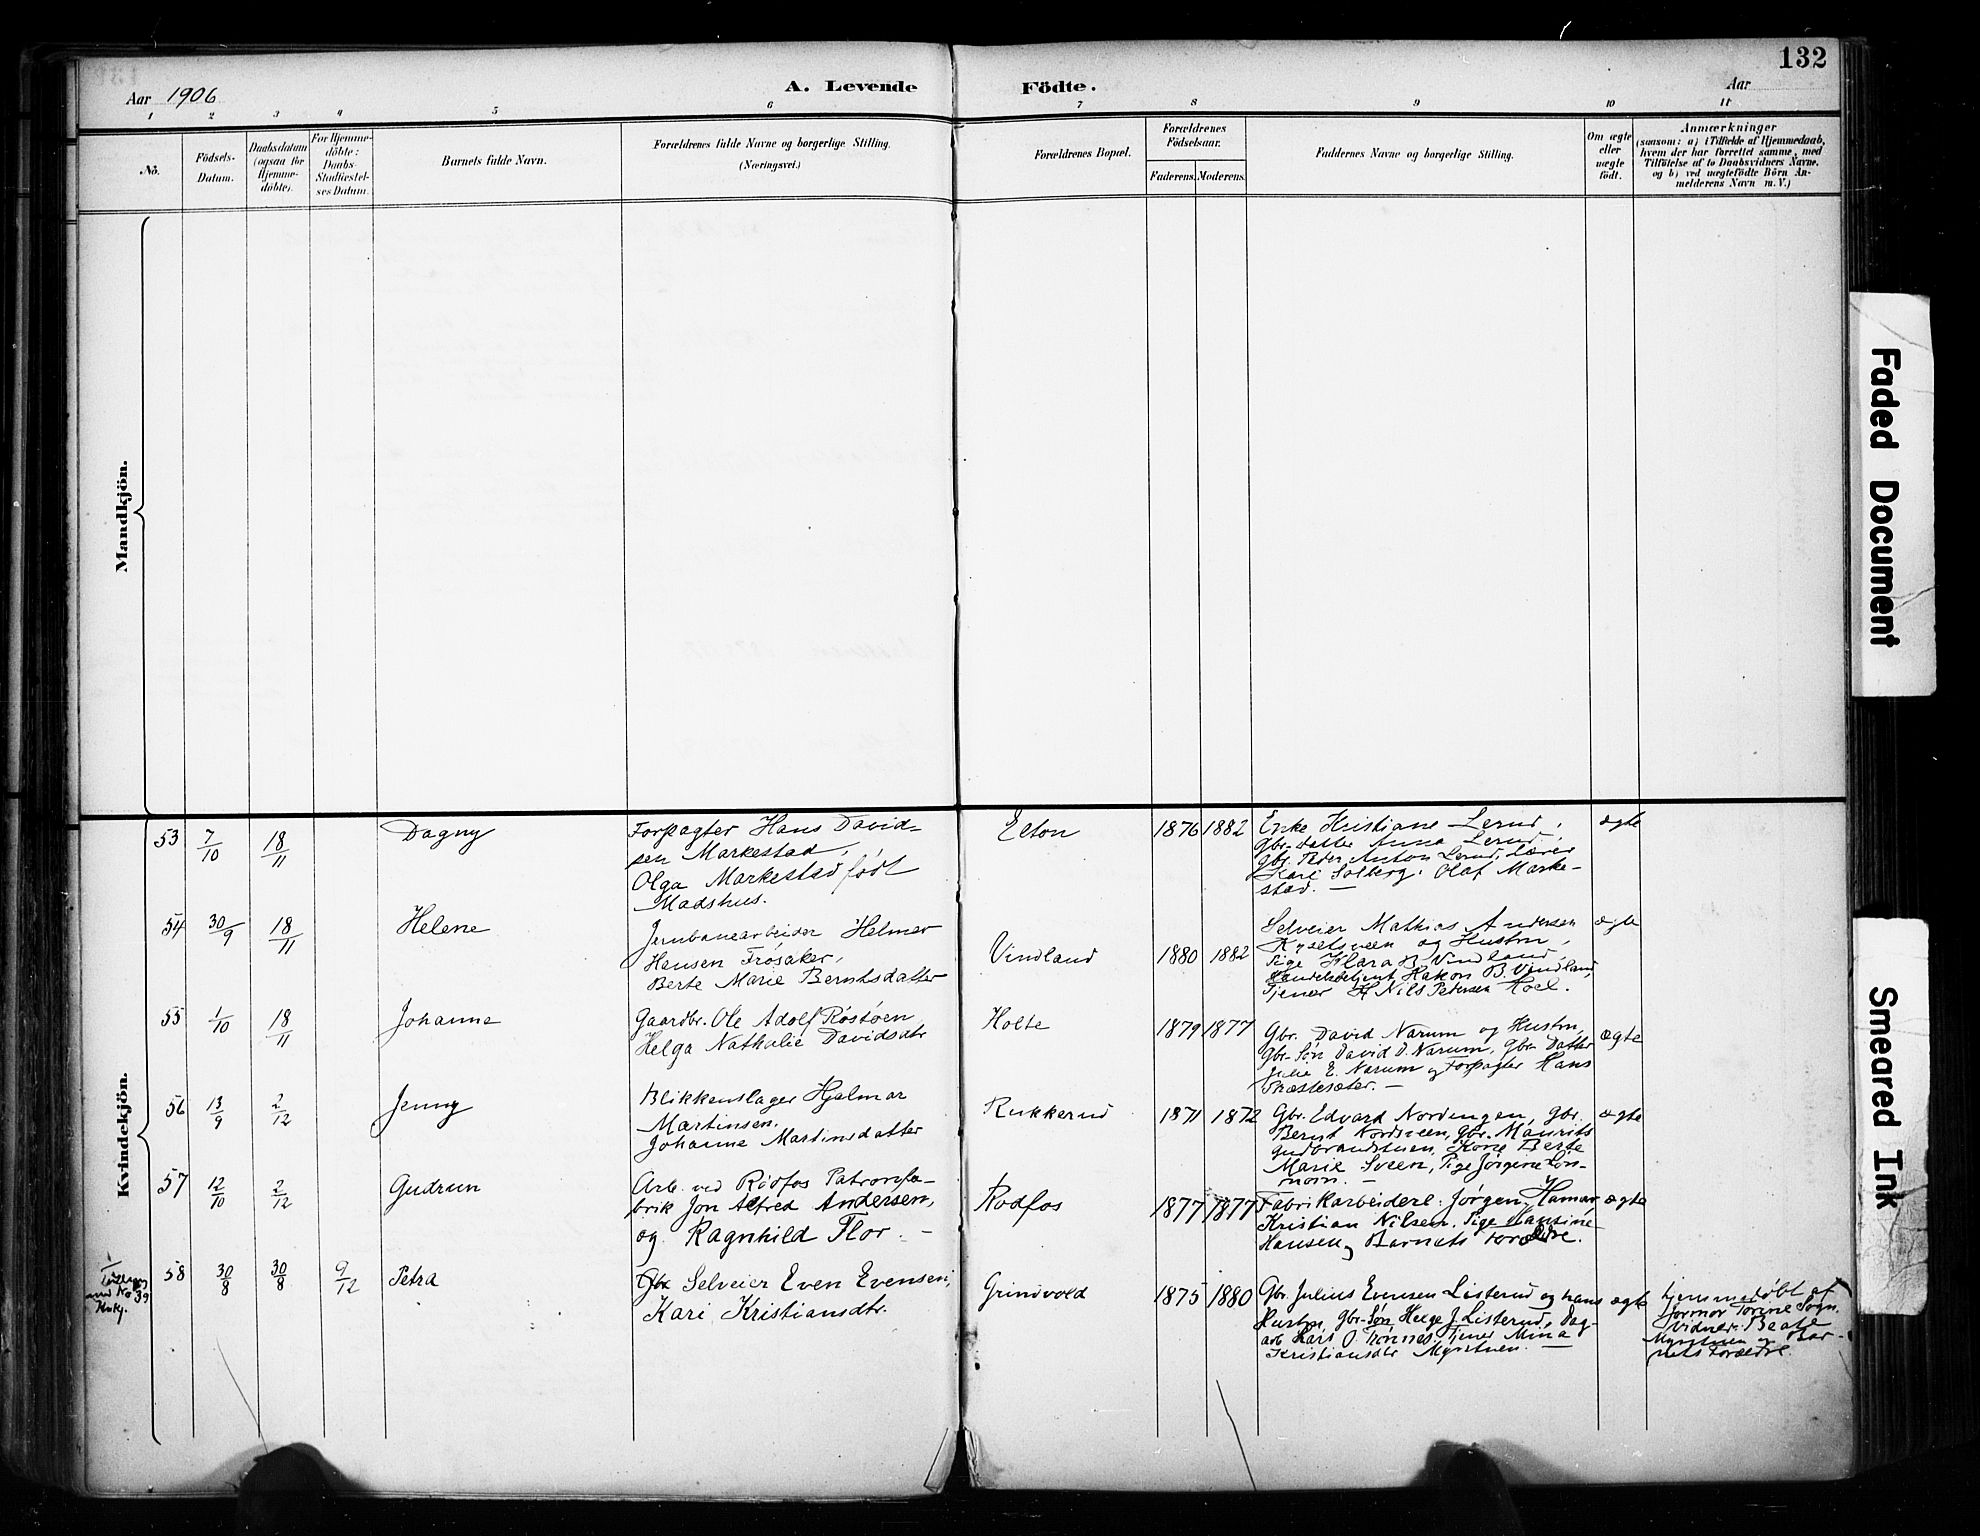 132
Aar 1906
A. Levende
Födte.
Aar
1 2 3 4 5 6 7 8 9 10 11
No.
Födsels-
Datum.
Daabsdatum
(ogsaa for
Hjemme-
döbte).
For Hjemme-
döbte:
Daabs
Stadfæstel-
ses Datum.
Barnets fulde Navn.
Forældrenes fulde Navne og borgerlige Stilling.
(Næringsvei.)
Forældrenes Bopæl.
Forældrenes
Födselsaar.
Faderens. Moderens.
Faddernes Navne og borgerlige Stilling.
Om ægte
eller
uægte
födt.
Anmærkninger
(saasom: a) i Tilfælde af Hjemmedaab,
hvem der har forrettet samme, med
Tilföielse af to Daabsvidners Navne,
og b) ved uægtefödte Börn An-
melderens Navn m. V.)
Mandkjön.
Kvindekjön.
53 7/10 18/11 Dagny
Forpagter Hans David-
sen Markestad,
Olga Markestad født
Madshus.
Elton 1876 1882
Enke Kristiane Lerud,
Gbr.datter Anna Lerud,
Gbr. Peder Anton Lerud, Lærer
Kare Solberg. Olaf Marke-
stad. —
ægte
54 30/9 18/11 Helene
Jernbanearbeider Helmer
Hansen Frøsaker,
Berte Marie Berntsdatter
Vindland 1880 1882
Selveier Mathias Andersen
Kysetsveen og Hustru,
Pige Klara B. Vindland,
Handelsbetjent Hakon B. Vindland,
Tjener H. Nils Petersen Hoel.
ægte
55 1/10 18/11 Johanne
Gaardbr. Ole Adolf Røstøen
Helga Nathalie Davidsdtr
Holte 1879 1877
Gbr. David Narum og Hustru,
Gbr. Søn David D. Narum, Gbr. Datter
Julie E. Narum og Forpagter Hans
Skæstesæter. —
ægte
56 13/9 2/12 Jenny
Blikkenslager Hjalmar
Martinsen.
Johanne Martinsdatter
Rukkerud 1871 1872
Gbr. Edvard Nordengen, Gbr.
Bernt Nordsveen, Gbr. Maurits
Gudbrandstuen, Kone Berte
Marie Sveen, Pige Jørgine Lön-
ægte
57 12/10 2/12 Gudrun
Arb. ved Rødfos Patronfa-
brik Jon Alfred Andersen,
og Ragnhild Flor. —
Rødfos 1877 1877
Fabrikarbeidere: Jørgen Hamar,
Kristian Nilsen, Pige Hansine
Hansen, og Barnets Forældre.
ægte
Tvilling
med No 39
58 30/8 30/8 9/12 Petra
Selveier Even Evensen,
Kari Kristiansdtr.
Grindvold 1875 1880
Gbr. Julius Evensen Listerud og hans
Hustru, Gbr. Søn Helge J. Listerud, Dag-
arb. Lars O. Trønnes, Tjener Mina
Kristiansdtr Myrstuen. —
ægte
Hjemmedøbt af
Jormor Torine Sogn.
Vidner: Beate
Myrstuen og Bar-
nets Forældre.
Faded Document
Smeared Ink